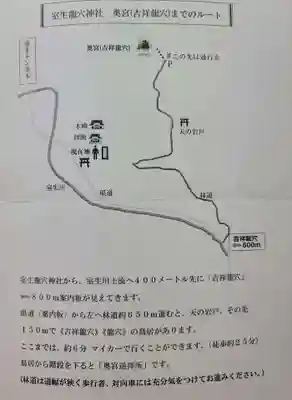 室生龍穴神社　奥宮(吉祥龍穴)までのルート
奥宮(吉祥龍穴)
この先は通行止
P
天の岩戸
本殿
拝殿
現在地
室生川
県道
林道
吉祥龍穴
⟸800m
室生龍穴神社から、室生川上流へ４００メートル先に「吉祥龍穴」
⟸８００m案内板が見えてきます。
県道（案内板）から左へ林道約６５０m進むと、天の岩戸、その先
１５０mで《吉祥龍穴》《龍穴》の鳥居があります。
ここまでは、約６分 マイカーで行くことができます。（徒歩約２５分）
鳥居から階段を下ると「奥宮遥拝所」です。
（林道は道幅が狭く歩行者、対向車には充分気をつけてお進みください。）